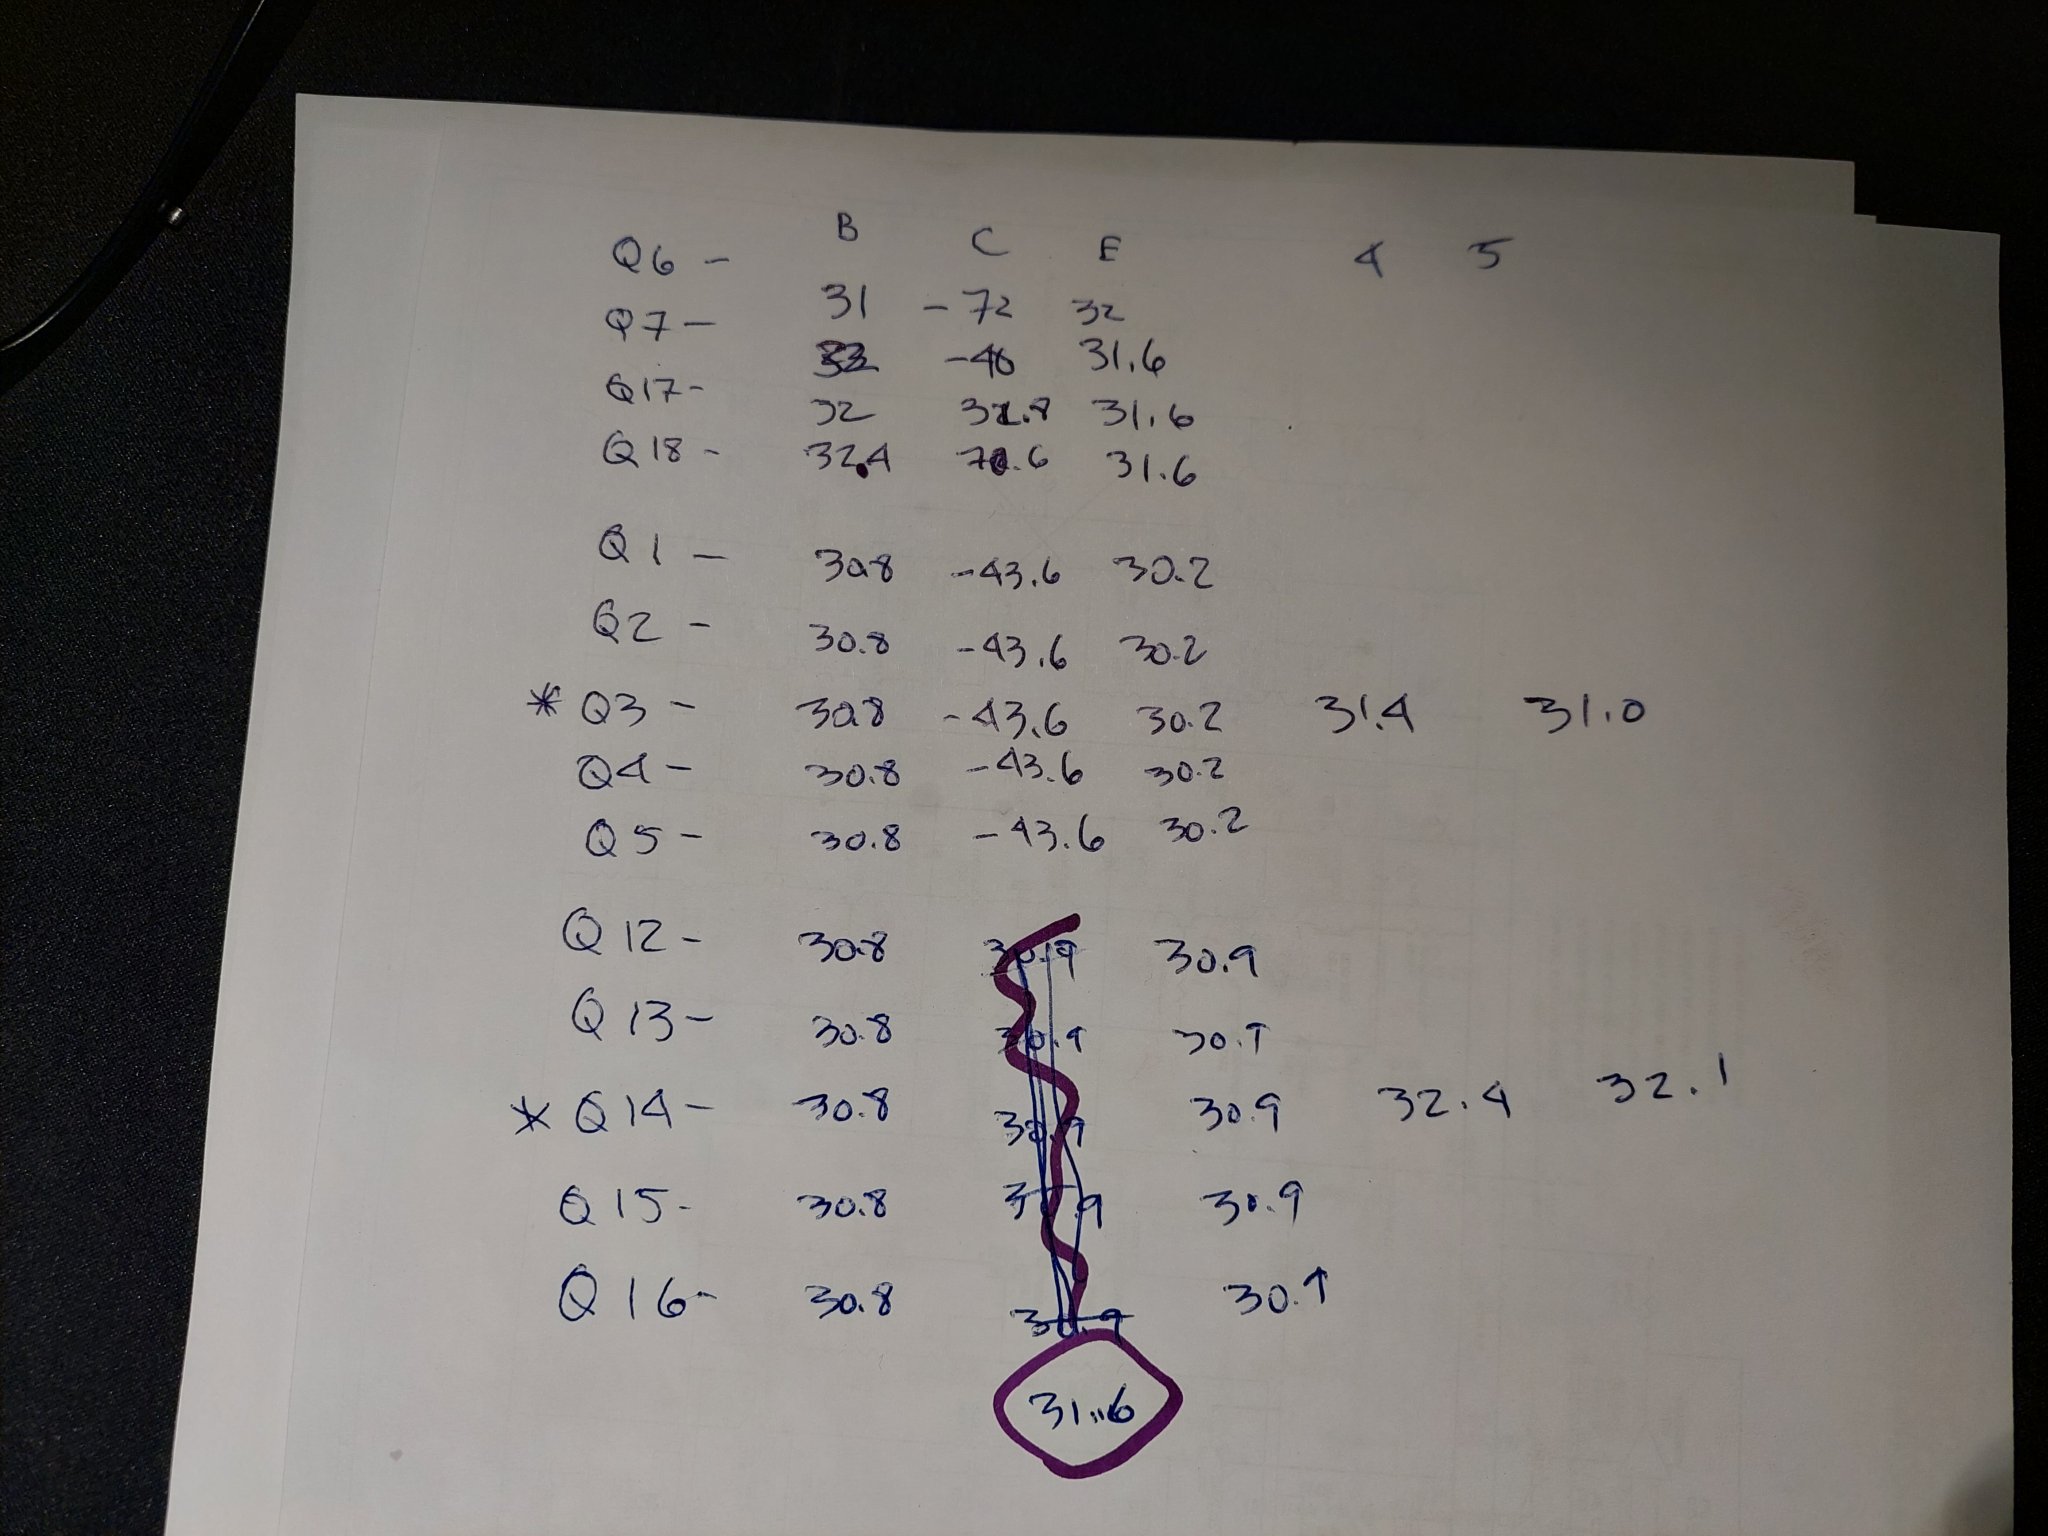 B C E 4 5
Q6 - 31 - 72 32
Q7 - -46 31.6
Q17- 32 31.6
Q18- 32.4 31.6
Q1 - 30.8 -43.6 30.2
Q2 - 30.8 -43.6 30.2
* Q3 - 30.8 -43.6 30.2 31.4 31.0
Q4 - 30.8 -43.6 30.2
Q5 - 30.8 -43.6 30.2
Q12- 30.8 30.9 30.9
Q13- 30.8 30.9 30.9
* Q14- 30.8 30.9 30.9 32.4 32.1
Q15- 30.8 30.9 30.9
Q16- 30.8 30.9 30.9
31.6